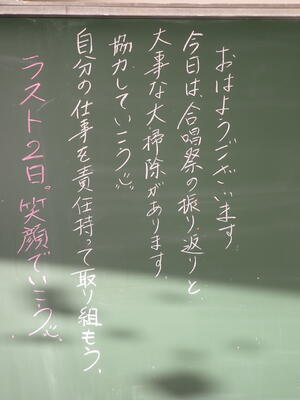 おはようございます
今日は、合唱祭の振り返りと、
大事な大掃除があります。
協力していこう
自分の仕事を責任持って取り組もう。
ラスト2日。笑顔でいこう